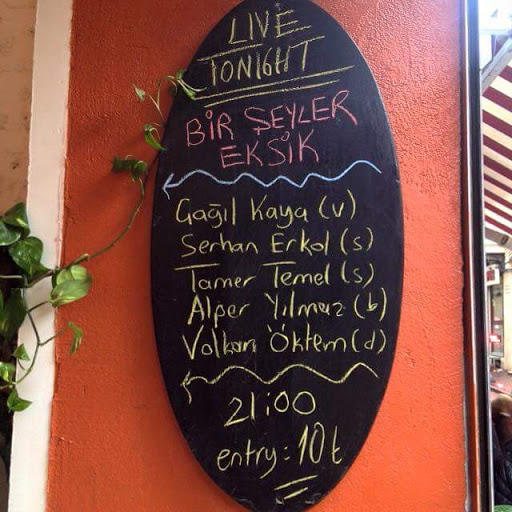 LIVE
TONIGHT
BİR ŞEYLER
EKSİK
Çağıl Kaya (v)
Serhan Erkol (s)
Tamer Temel (s)
Alper Yılmaz (b)
Volkan Öktem (d)
21:00
entry: 10 t